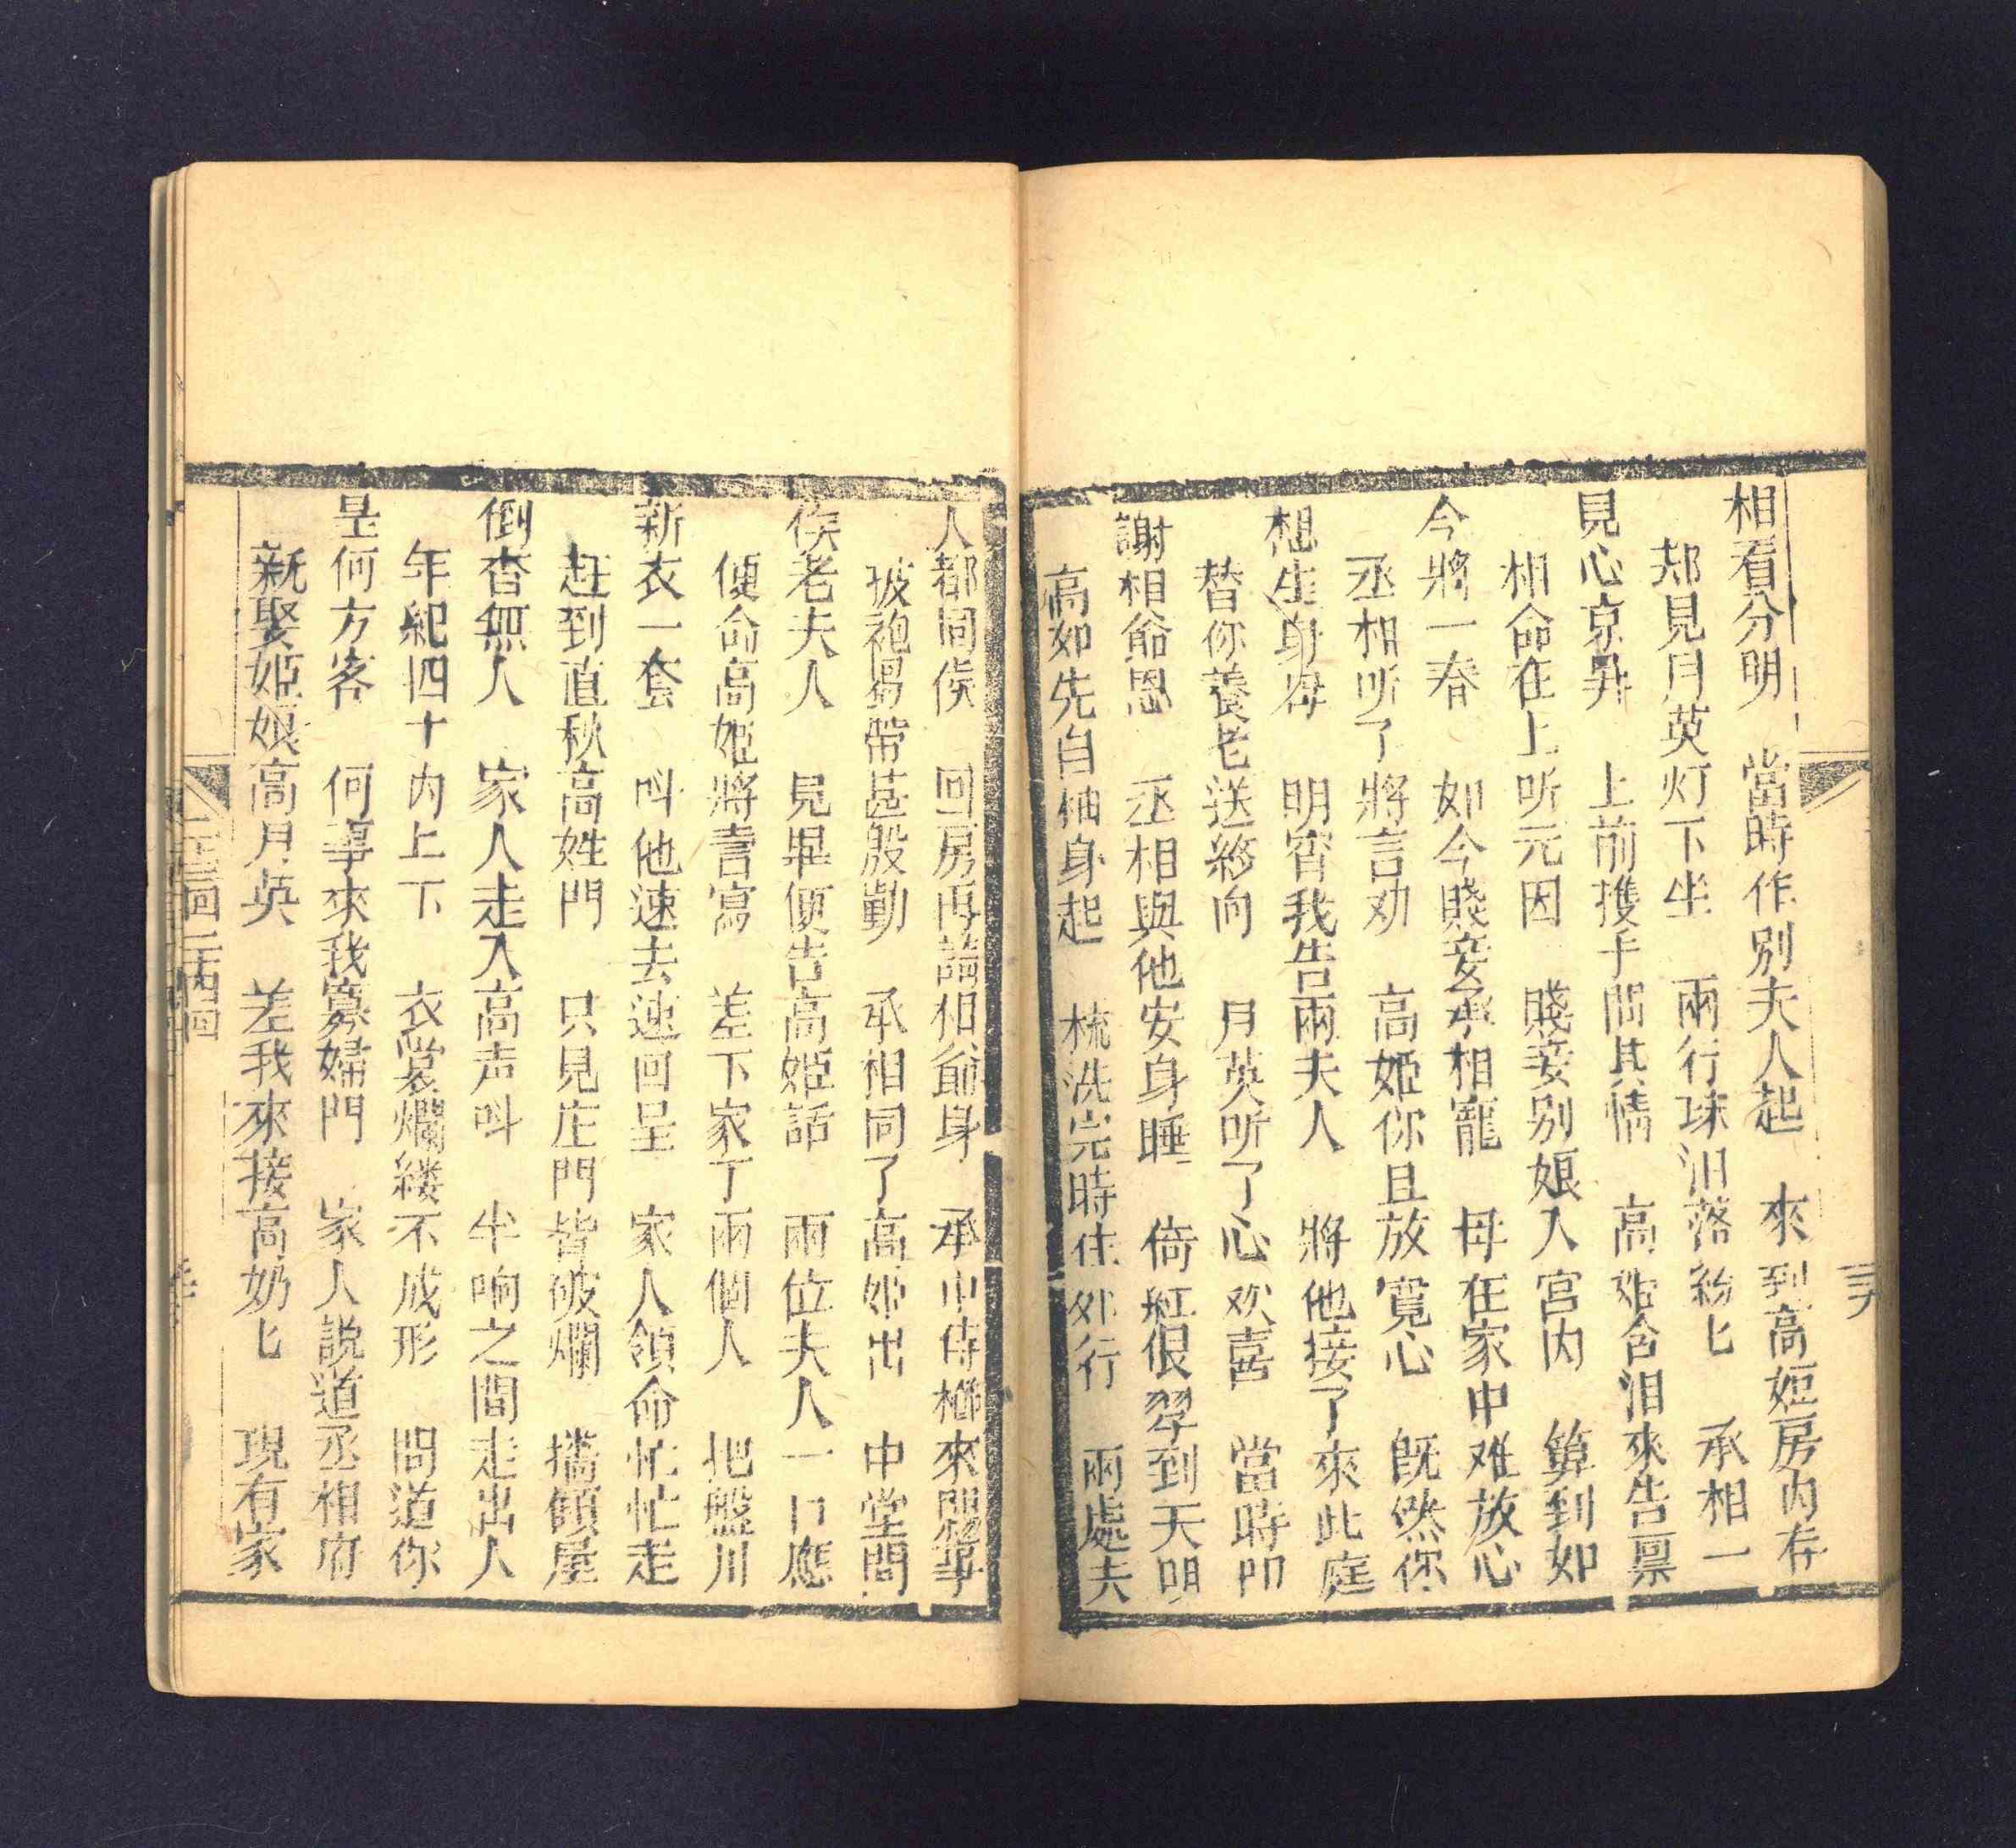 相看分明 當時作別夫人起 來到高姬房內存
却見月英灯下坐 兩行珠泪落紛匕 承相一
見心京異 上前携手問其情 高姬含泪來告禀
相命在上听元因 賤妾别娘入宫内 算到如
今將一春 如今賤妾承相寵 母在家中难放心
丞相听了將言劝 高姬你且放寬心 既然你
想生身母 明宵我告兩夫人 將他接了來此庭
替你養老送終向 月英听了心欢喜 當時叩
謝相爺恩 丞相與他安身睡 倚紅偎翠到天明
高如先自抽身起 梳洗完時往外行 兩處夫
人都同侯 回房再請相爺身 承中侍櫛來門等
披袍昜帶甚殷勤 承相同了高姬出 中堂問
侯老夫人 見畢便告高姬話 兩位夫人一口應
便命高姬將書寫 差下家丁兩個人 把盤川
新衣一套 呌他速去速回呈 家人領命忙忙走
赶到直秋高姓門 只見庄門皆破爛 墻傾屋
倒杳無人 家人走入高声呌 半响之間走出人
年紀四十内上下 衣裳爛縷不成形 問道你
是何方客 何事來我寡婦門 家人説道丞相府
新娶姬娘高月英 差我來接高奶匕 現有家
二十三回二十四回
三六